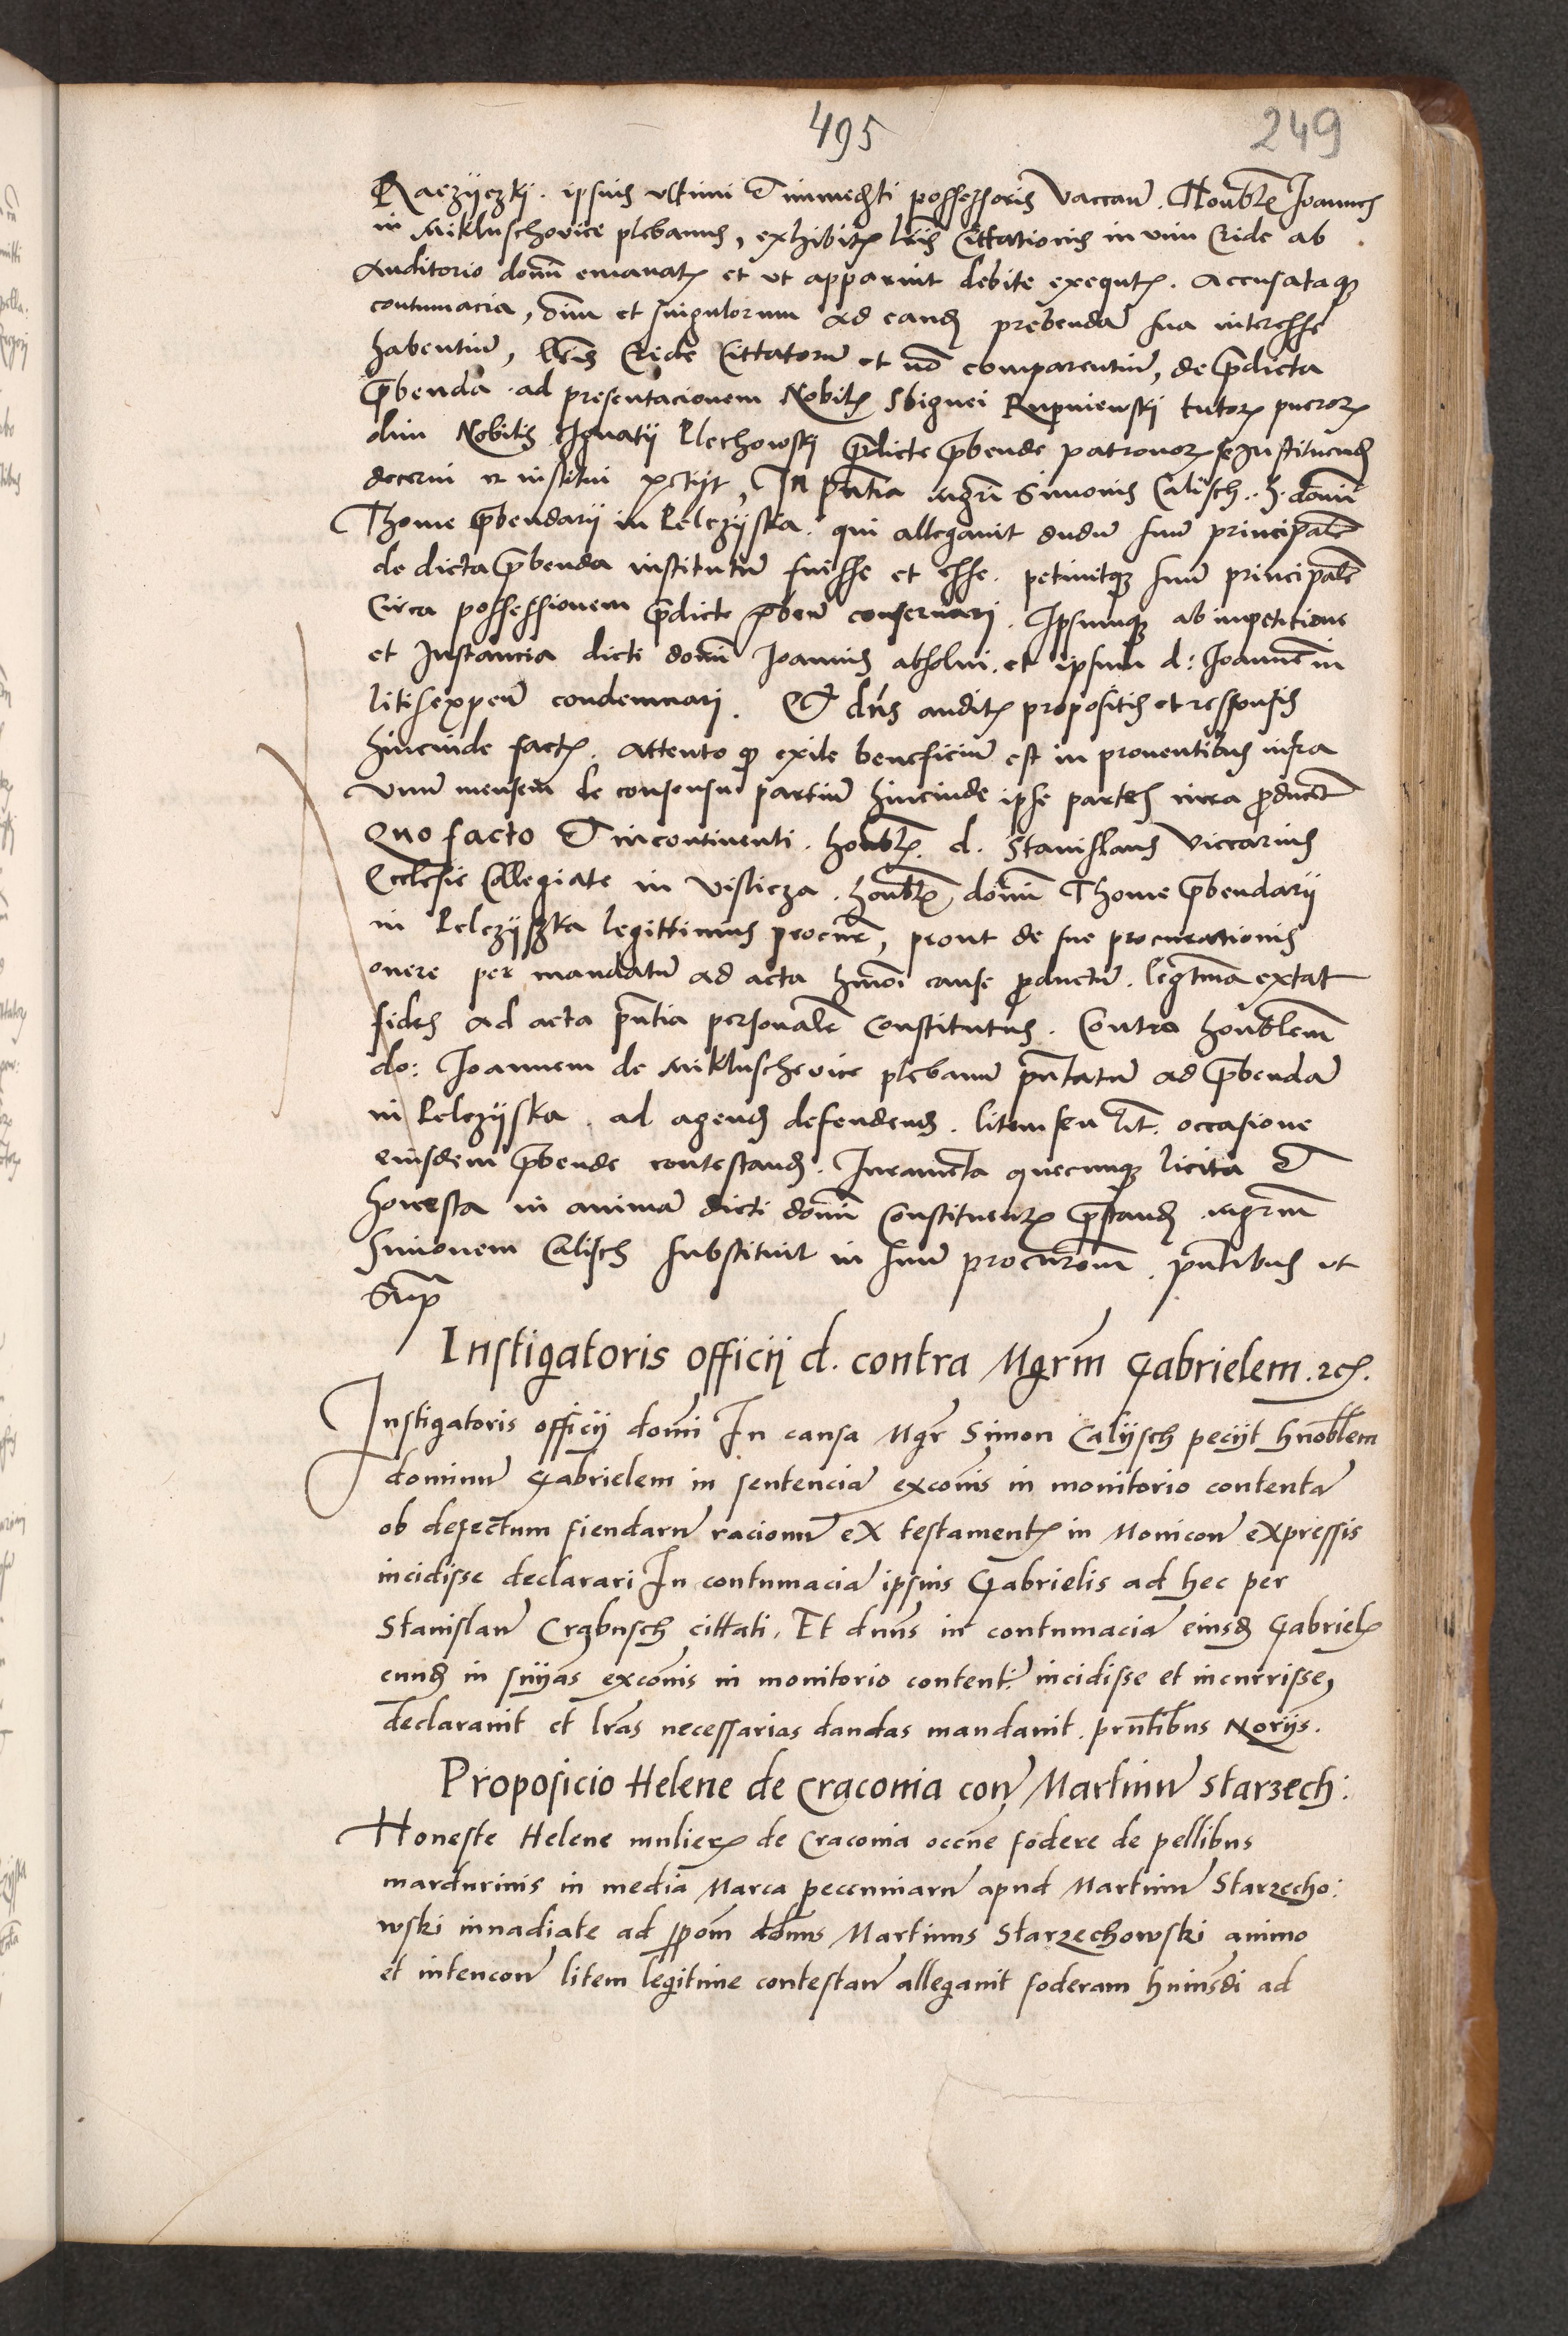 495
249
Raczijczkij. ipsius ultimi & immediati possessoris vaccan̄. Honbl̄ Joannes
in Mikluschovice plebanus, exhibit̄ lr̄is Cittationis in vim Cride ab
Auditorio domi͞ emanat̄ et ut apparuit debite exequut̄. Accusataq̢
contumacia, oı͞m et singulorum ad eand̄ prebendā sua interesse
habentiū, lr̄is Cride Cittatorū et nō comparentiū, de p̄dicta
p̄benda. ad presentacionem Nobil̄ Sbignei Rupniewskj tutor̄ pueror̄
olim Nobilis Ignatij Clechowskj p̄dicte p̄bende patronor̄ se Instituend̄
decerni et institui petijt, In pn̄tia mgr̄i Simonis Calisch. domi͞
Thome p̄bendarij in Pelczijska. qui allegavit dudū suū principalē
de dicta p̄benda institutū fuisse et esse. petivitq̢ suū principalē
Circa possessionem p̄dicte p̄ben̄ conservari. Ipsumq̢ ab inpetitione
et Instancia dicti domi͞ Joannis absolvi. et ipsum d: Joannē in
litis expen̄ condemnari. Et dn̄s audit̄ propositis et responsis
hincinde fact̄. Attento q̢ exile beneficiū est in proventibus infra
unū mensem de consensu partiū hincinde ipse partes iura p̄ducāt
Quo facto & incontinenti. honbl̄. d. Stanislaus viccarius
Ecclesie Collegiate in Visticza. honbl̄ domi͞ Thome p̄bendarij
in Pelczijszka legittimus procur̄, prout de sue procurationis
onere per mandatū ad acta hmōi cause p̄ductū. legtı͞ma extat
fides ad acta pn̄tia personalr̄ Constitutus. Contra honblem̄
do: Joannem de Mikluschovice plebanū pn̄tatū ad p̄bendā
in Pelczijska. ad agend̄ defendend̄. litem seu lit̄. occasione
eiusdem p̄bende contestand̄. Iuramēta quecunq̢ licita &
honesta in animā dicti domi͞ Constituent̄ p̄stand̄. mgrm̄
Simonem Calisch substituit in suū procurōem. pn̄tibus ut
Sup̄
Instigatoris officij d. contra Mgrm̄ Gabrielem. etc̄.
Instigatoris officij domı͞ In causa Mgr̄ Simon Calijsch pecijt hnōblem
dominū Gabrielem in sentenciā excōnis in monitorio contentā
ob defectum fiendarū racionū ex testament̄ in Monicon̄ expressis
incidisse declarari In contumaciā ipsius Gabrielis ad hec per
Stanislaū Crzbusch cittati. Et dnūs in contumaciā eiusd̄ Gabriel̄
eund̄ in snijas excōnis in monitorio content̄. incidisse et incurrisse,
declaravit et lr̄as necessarias dandas mandavit. prn̄tibus Norijs.
Proposicio Helene de Cracovia con̄ Martinū Starzech:
Honeste Helene mulier̄ de Cracovia occn̄e fodere de pellibus
mardurinis in media Marca peccuniarū apud Martinū Starzecho:
wski invadiate ad p̄pōm dōnus Martinus Starzechowski animo
et intencon̄ litem legitime contestan̄ allegavit foderam huiusd̄i ad